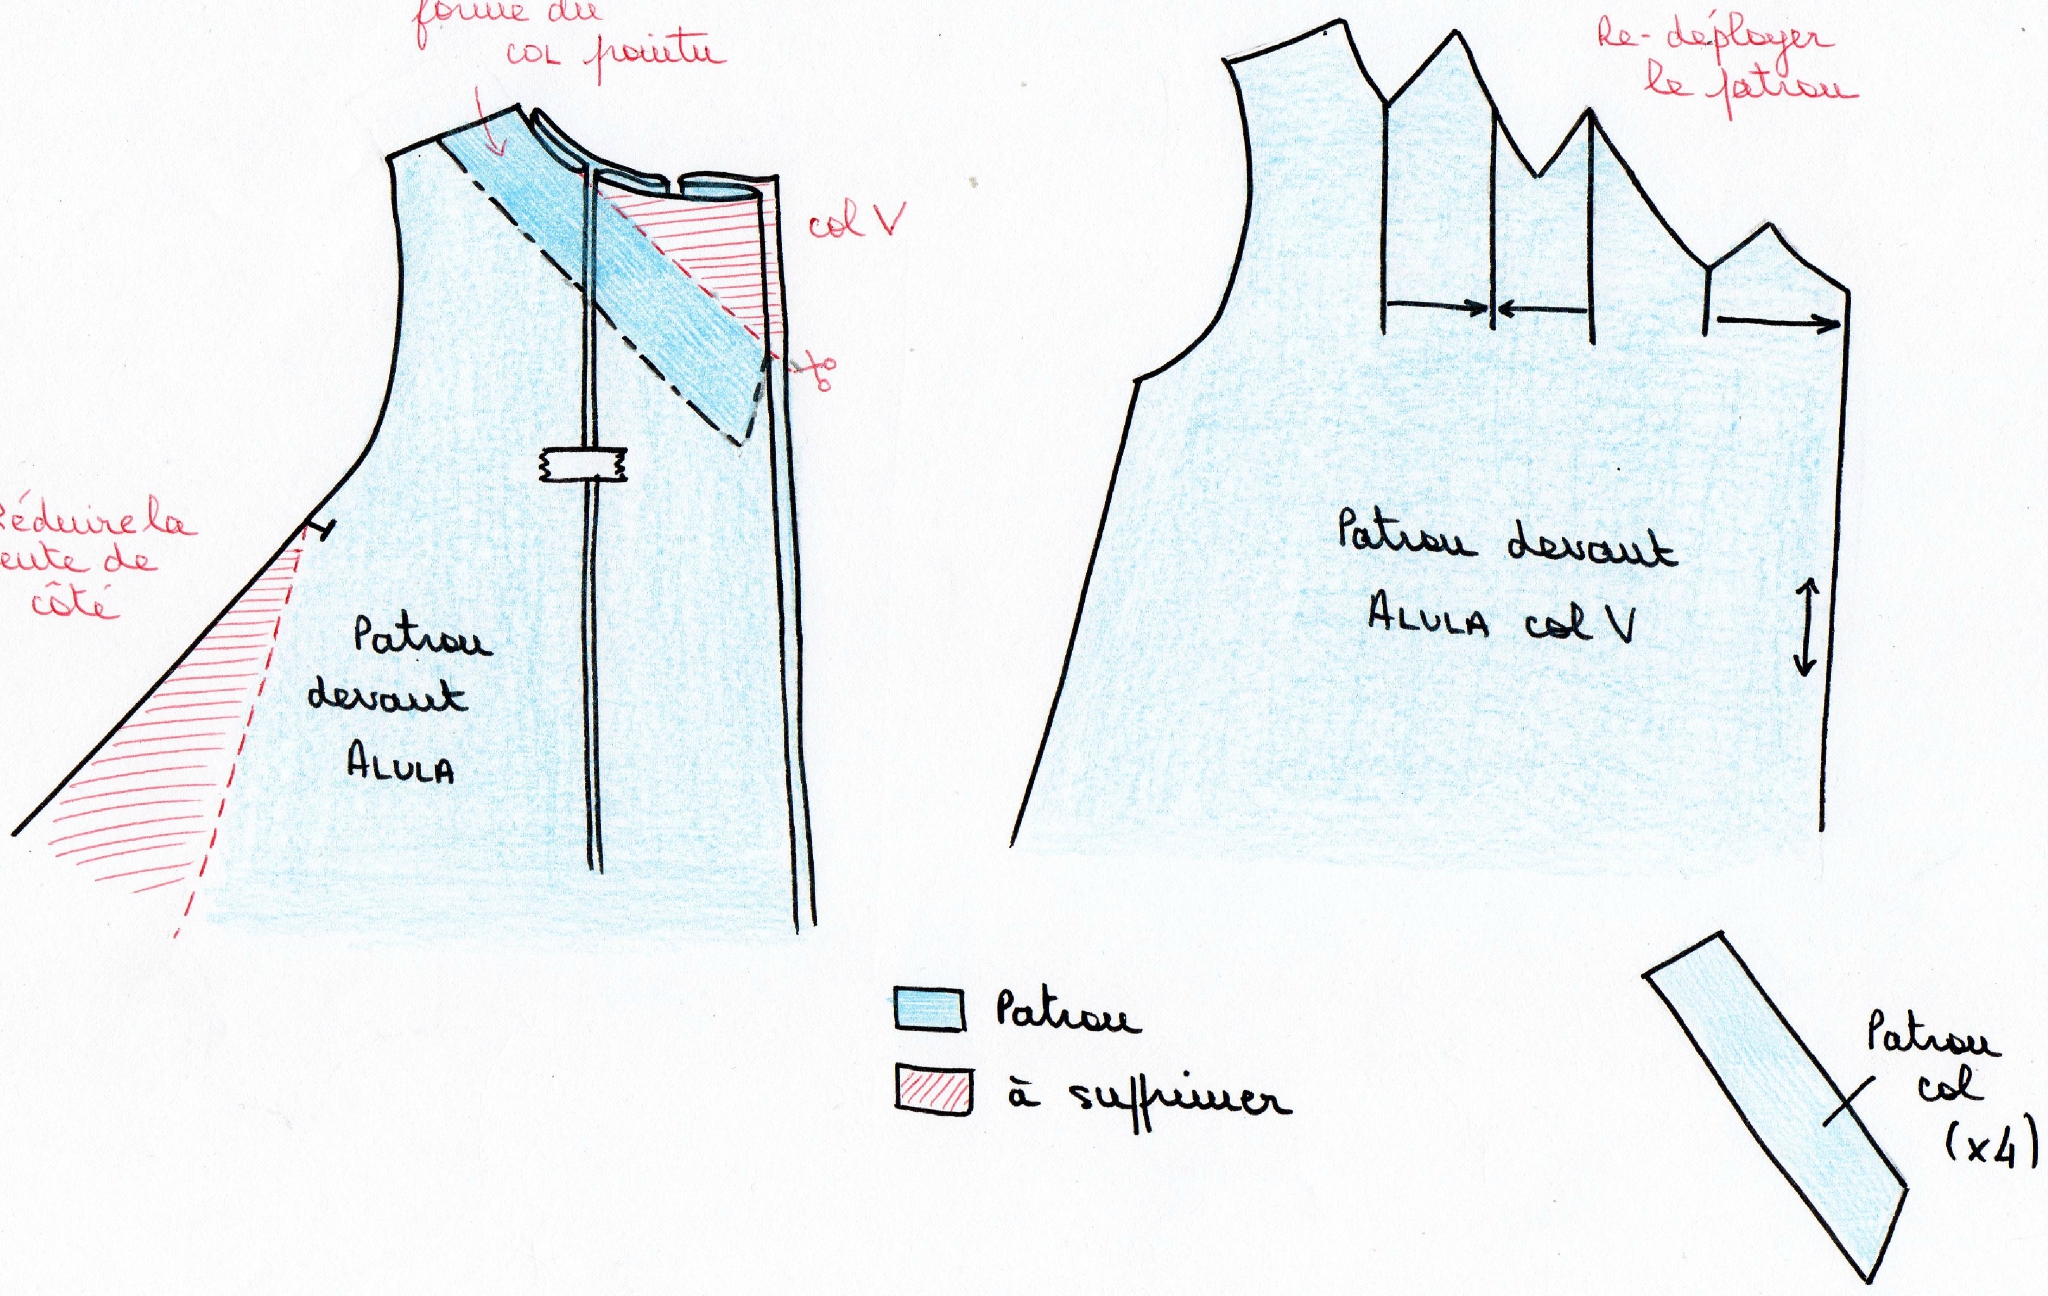 forme du
col pointu
col V
Réduire la
fente de
côté
Patron
devant
ALULA
Re-déployer
le patron
Patron devant
ALULA col V
Patron
à supprimer
Patron
col
(x4)